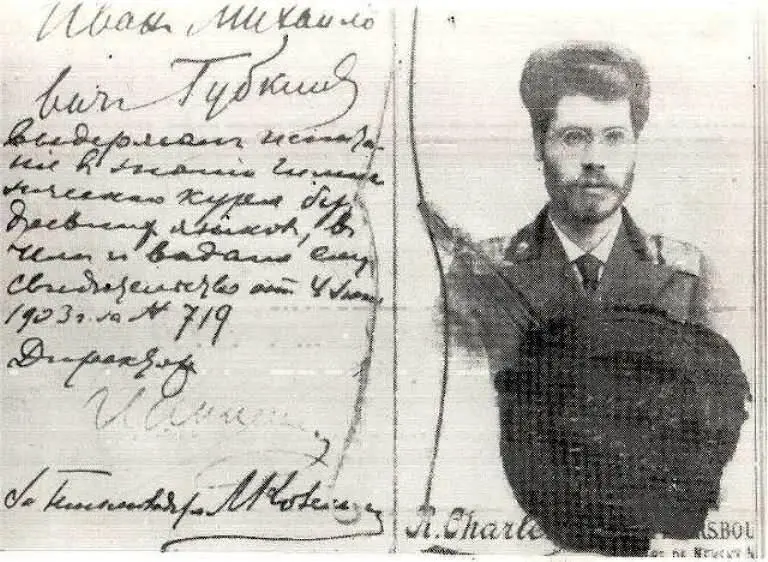 Иван Михайло
вич Губкин
выдержал испыта-
ние в знании гимна
зического курса без
древних языков, в
чем и выдано ему
свидетельство от 4 июн
1903 г. за № 719
Директор
За
R. Charle RSBOU